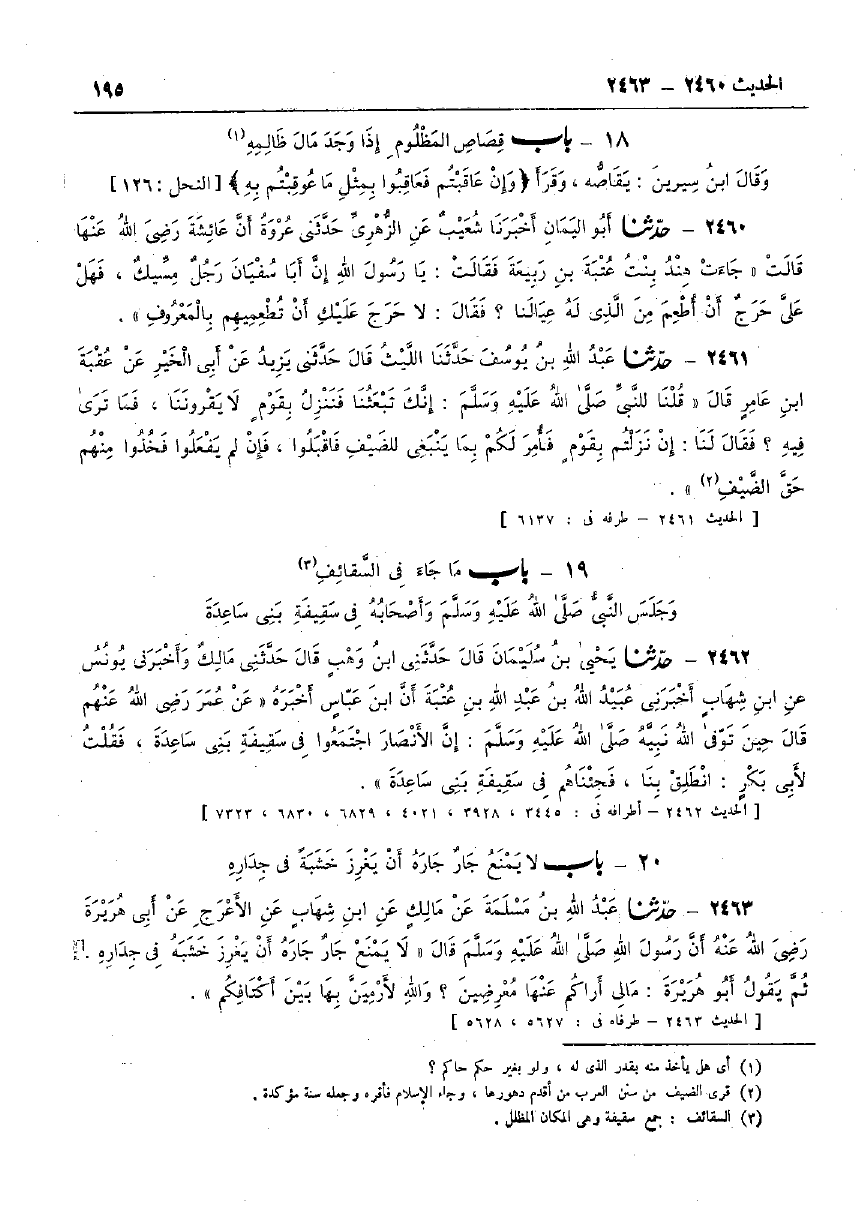 الحديث ٢٤٦٠ – ٢٤٦٣ ١٩٥
١٨ – باب قِصَاصِ المَظْلُومِ إِذَا وَجَدَ مَالَ ظَالِمِهِ(١)
وَقَالَ ابنُ سِيرِينَ : يُقَاصُّه ، وَقَرَأَ ﴿وَإِنْ عَاقَبْتُم فَعَاقِبُوا بِمِثْلِ مَا عُوقِبْتُم بِهِ﴾ [ النحل : ١٢٦ ]
٢٤٦٠ – حدّثنا أَبُو اليَمَانِ أَخْبَرَنَا شُعَيْبٌ عَنِ الزُّهْرِىِّ حَدَّثَنى عُرْوَةُ أَنَّ عَائِشَةَ رَضِىَ اللهُ عَنْهَا
قَالَتْ « جَاءَتْ هِنْدُ بِنْتُ عُتْبَةَ بنِ رَبِيعَةَ فَقَالَتْ : يَا رَسُولَ اللهِ إِنَّ أَبَا سُفْيَانَ رَجُلٌ مِسِّيكٌ ، فَهَلْ
عَلَىَّ حَرَجٌ أَنْ أُطْعِمَ مِنَ الَّذِى لَهُ عِيَالَنا ؟ فَقَالَ : لا حَرَجَ عَلَيْكِ أَنْ تُطْعِمِيهِم بِالْمَعْرُوفِ » .
٢٤٦١ – حدّثنا عَبْدُ اللهِ بنُ يُوسُفَ حَدَّثَنَا اللَّيْثُ قَالَ حَدَّثَنى يَزِيدُ عَنْ أَبِى الْخَيْرِ عَنْ عُقْبَةَ
ابنِ عَامِرٍ قَالَ « قُلْنَا لِلنَّبِىِّ صَلَّى اللهُ عَلَيْهِ وَسَلَّمَ : إِنَّكَ تَبْعَثُنَا فَنَنْزِلُ بِقَوْمٍ لَا يَقْرُونَنَا ، فَمَا تَرَىٰ
فِيهِ ؟ فَقَالَ لَنَا : إِنْ نَزَلْتُم بِقَوْمٍ فَأُمِرَ لَكُمْ بِمَا يَنْبَغِى لِلضَّيْفِ فَاقْبَلُوا ، فَإِنْ لم يَفْعَلُوا فَخُذُوا مِنْهُم
حَقَّ الضَّيْفِ(٢) » .
[ الحديث ٢٤٦١ – طرفه فى : ٦١٣٧ ]
١٩ – باب مَا جَاءَ فِى السَّقَائِفِ(٣)
وَجَلَسَ النَّبِىُّ صَلَّى اللهُ عَلَيْهِ وَسَلَّمَ وَأَصْحَابُهُ فِى سَقِيفَةِ بَنِى سَاعِدَةَ
٢٤٦٢ – حدّثنا يَحْيىٰ بنُ سُلَيْمَانَ قَالَ حَدَّثَنِى ابنُ وَهْبٍ قَالَ حَدَّثَنِى مَالِكٌ وَأَخْبَرَنى يُونُسُ
عنِ ابنِ شِهَابٍ أَخْبَرَنِى عُبَيْدُ اللهِ بنُ عَبْدِ اللهِ بنِ عُتْبَةَ أَنَّ ابنَ عَبَّاسٍ أَخْبَرَهُ « عَنْ عُمَرَ رَضِىَ اللهُ عَنْهُم
قَالَ حِينَ تَوَفّىٰ اللهُ نَبِيَّهُ صَلَّى اللهُ عَلَيْهِ وَسَلَّمَ : إِنَّ الأَنْصَارَ اجْتَمَعُوا فِى سَقِيفَةِ بَنِى سَاعِدَةَ ، فَقُلْتُ
لأَبِى بَكْرٍ : انْطَلِقْ بِنَا ، فَجِئْنَاهُم فِى سَقِيفَةِ بَنِى سَاعِدَةَ » .
[ الحديث ٢٤٦٢ – أطرافه فى : ٣٤٤٥ ، ٣٩٢٨ ، ٤٠٢١ ، ٦٨٢٩ ، ٦٨٣٠ ، ٧٣٢٣ ]
٢٠ – باب لا يَمْنَعُ جَارٌ جَارَهُ أَنْ يَغْرِزَ خَشَبَةً فى جِدَارِهِ
٢٤٦٣ – حدّثنا عَبْدُ اللهِ بنُ مَسْلَمَةَ عَنْ مَالِكٍ عَنِ ابنِ شِهَابٍ عَنِ الأَعْرَجِ عَنْ أَبِى هُرَيْرَةَ
رَضِىَ اللهُ عَنْهُ أَنَّ رَسُولَ اللهِ صَلَّى اللهُ عَلَيْهِ وَسَلَّمَ قَالَ « لَا يَمْنَعْ جَارٌ جَارَهُ أَنْ يَغْرِزَ خَشَبَهُ فِى جِدَارِهِ .
ثُمَّ يَقُولُ أَبُو هُرَيْرَةَ : مَالى أَرَاكُم عَنْهَا مُعْرِضِينَ ؟ وَاللهِ لأَرْمِيَنَّ بِهَا بَيْنَ أَكْتَافِكُم » .
[ الحديث ٢٤٦٣ – طرفاه فى : ٥٦٢٧ ، ٥٦٢٨ ]
(١) أى هل يأخذ منه بقدر الذى له ، ولو بغير حكم حاكم ؟
(٢) قرى الضيف من سنن العرب من أقدم دهورها ، وجاء الإسلام فأقره وجعله سنة مؤكدة .
(٣) السقائف : جمع سقيفة وهى المكان المظلل .